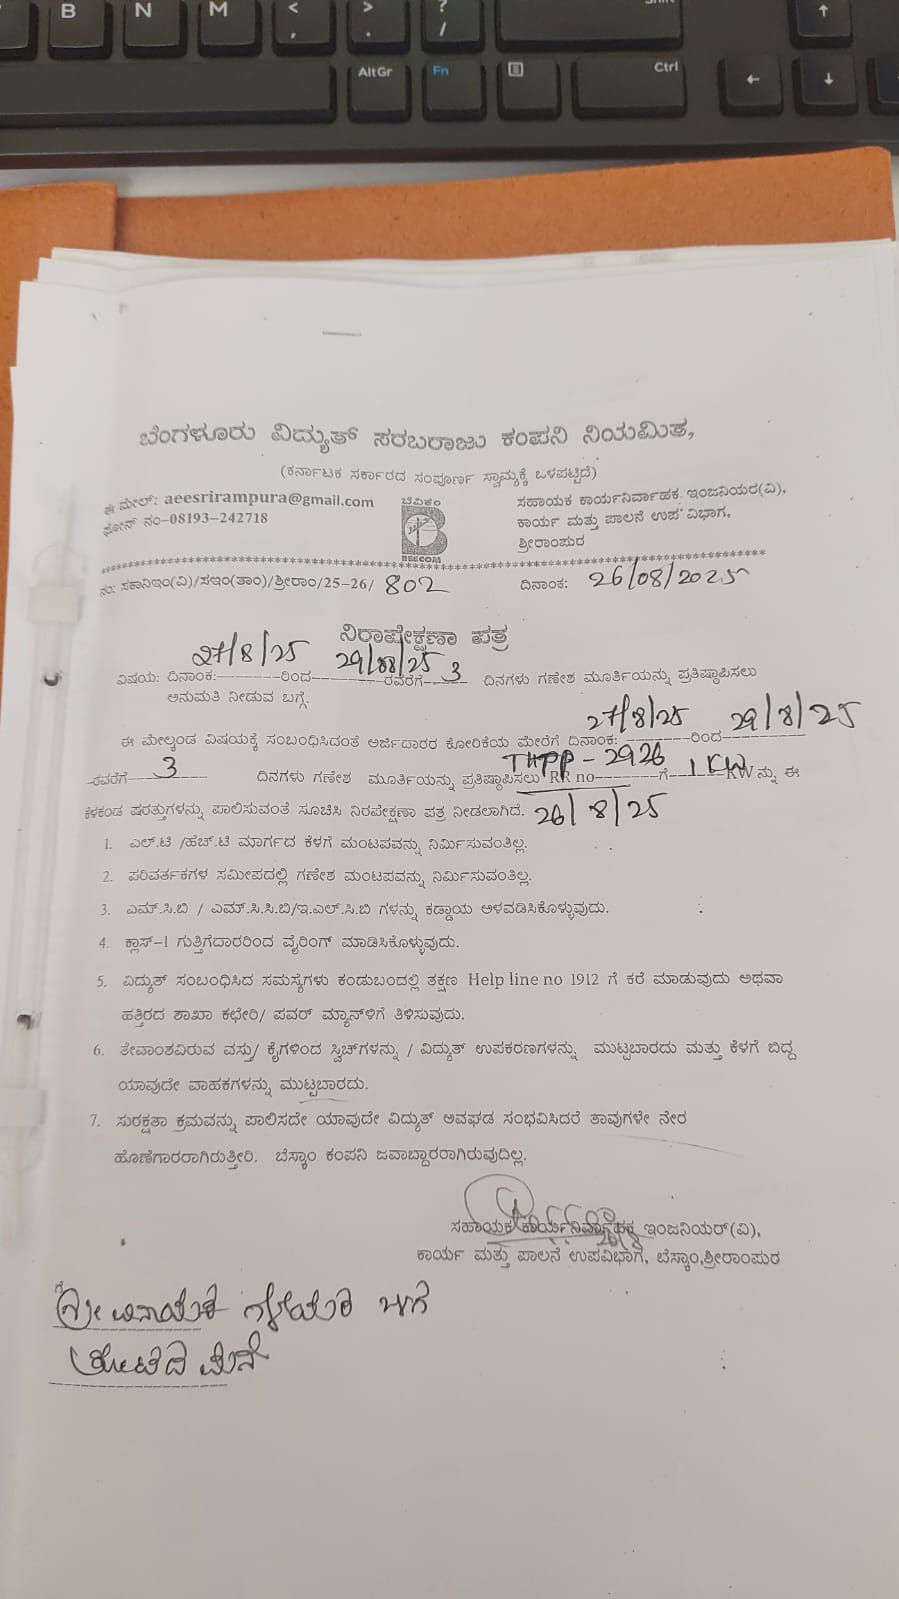 B N M < , > . ? /
AltGr Fn Ctrl ↑ ← ↓
ಬೆಂಗಳೂರು ವಿದ್ಯುತ್ ಸರಬರಾಜು ಕಂಪನಿ ನಿಯಮಿತ,
(ಕರ್ನಾಟಕ ಸರ್ಕಾರದ ಸಂಪೂರ್ಣ ಸ್ವಾಮ್ಯಕ್ಕೆ ಒಳಪಟ್ಟಿದೆ)
ಈ ಮೇಲ್: aeesrirampura@gmail.com
ಫೋನ್ ನಂ-08193-242718
ಬೆವಿಕಂ
BESCOM
ಸಹಾಯಕ ಕಾರ್ಯನಿರ್ವಾಹಕ ಇಂಜನಿಯರ(ವಿ),
ಕಾರ್ಯ ಮತ್ತು ಪಾಲನೆ ಉಪ ವಿಭಾಗ,
ಶ್ರೀರಾಂಪುರ
ನಂ: ಸಕಾನಿಇಂ(ವಿ)/ಸಇಂ(ತಾಂ)/ಶ್ರೀರಾಂ/25-26/ 802 ದಿನಾಂಕ: 26/08/2025
ನಿರಾಪೇಕ್ಷಣಾ ಪತ್ರ
ವಿಷಯ: ದಿನಾಂಕ: 27/8/25 ರಿಂದ 29/08/25 ರವರೆಗೆ 3 ದಿನಗಳು ಗಣೇಶ ಮೂರ್ತಿಯನ್ನು ಪ್ರತಿಷ್ಠಾಪಿಸಲು
ಅನುಮತಿ ನೀಡುವ ಬಗ್ಗೆ.
ಈ ಮೇಲ್ಕಂಡ ವಿಷಯಕ್ಕೆ ಸಂಬಂಧಿಸಿದಂತೆ ಅರ್ಜಿದಾರರ ಕೋರಿಕೆಯ ಮೇರೆಗೆ ದಿನಾಂಕ: 27/8/25 ರಿಂದ 29/8/25
ರವರೆಗೆ 3 ದಿನಗಳು ಗಣೇಶ ಮೂರ್ತಿಯನ್ನು ಪ್ರತಿಷ್ಠಾಪಿಸಲು RR no THPP-2926 ಗೆ 1 KW KW ನ್ನು ಈ
ಕೆಳಕಂಡ ಷರತ್ತುಗಳನ್ನು ಪಾಲಿಸುವಂತೆ ಸೂಚಿಸಿ ನಿರಪೇಕ್ಷಣಾ ಪತ್ರ ನೀಡಲಾಗಿದೆ. 26/8/25
1. ಎಲ್.ಟಿ /ಹೆಚ್.ಟಿ ಮಾರ್ಗದ ಕೆಳಗೆ ಮಂಟಪವನ್ನು ನಿರ್ಮಿಸುವಂತಿಲ್ಲ.
2. ಪರಿವರ್ತಕಗಳ ಸಮೀಪದಲ್ಲಿ ಗಣೇಶ ಮಂಟಪವನ್ನು ನಿರ್ಮಿಸುವಂತಿಲ್ಲ.
3. ಎಮ್.ಸಿ.ಬಿ / ಎಮ್.ಸಿ.ಸಿ.ಬಿ/ಇ.ಎಲ್.ಸಿ.ಬಿ ಗಳನ್ನು ಕಡ್ಡಾಯ ಅಳವಡಿಸಿಕೊಳ್ಳುವುದು.
4. ಕ್ಲಾಸ್-1 ಗುತ್ತಿಗೆದಾರರಿಂದ ವೈರಿಂಗ್ ಮಾಡಿಸಿಕೊಳ್ಳುವುದು.
5. ವಿದ್ಯುತ್ ಸಂಬಂಧಿಸಿದ ಸಮಸ್ಯೆಗಳು ಕಂಡುಬಂದಲ್ಲಿ ತಕ್ಷಣ Help line no 1912 ಗೆ ಕರೆ ಮಾಡುವುದು ಅಥವಾ
ಹತ್ತಿರದ ಶಾಖಾ ಕಛೇರಿ/ ಪವರ್ ಮ್ಯಾನ್‌ಳಿಗೆ ತಿಳಿಸುವುದು.
6. ತೇವಾಂಶವಿರುವ ವಸ್ತು/ ಕೈಗಳಿಂದ ಸ್ವಿಚ್‌ಗಳನ್ನು / ವಿದ್ಯುತ್ ಉಪಕರಣಗಳನ್ನು ಮುಟ್ಟಬಾರದು ಮತ್ತು ಕೆಳಗೆ ಬಿದ್ದ
ಯಾವುದೇ ವಾಹಕಗಳನ್ನು ಮುಟ್ಟಬಾರದು.
7. ಸುರಕ್ಷತಾ ಕ್ರಮವನ್ನು ಪಾಲಿಸದೇ ಯಾವುದೇ ವಿದ್ಯುತ್ ಅವಘಡ ಸಂಭವಿಸಿದರೆ ತಾವುಗಳೇ ನೇರ
ಹೊಣೆಗಾರರಾಗಿರುತ್ತೀರಿ. ಬೆಸ್ಕಾಂ ಕಂಪನಿ ಜವಾಬ್ದಾರರಾಗಿರುವುದಿಲ್ಲ.
ಸಹಾಯಕ ಕಾರ್ಯನಿರ್ವಾಹಕ ಇಂಜನಿಯರ್(ವಿ),
ಕಾರ್ಯ ಮತ್ತು ಪಾಲನೆ ಉಪವಿಭಾಗ, ಬೆಸ್ಕಾಂ,ಶ್ರೀರಾಂಪುರ
ಶ್ರೀ ವಿನಾಯಕ ಗೆಳೆಯರ ಬಳಗ
ತೋಟದ ಮನೆ